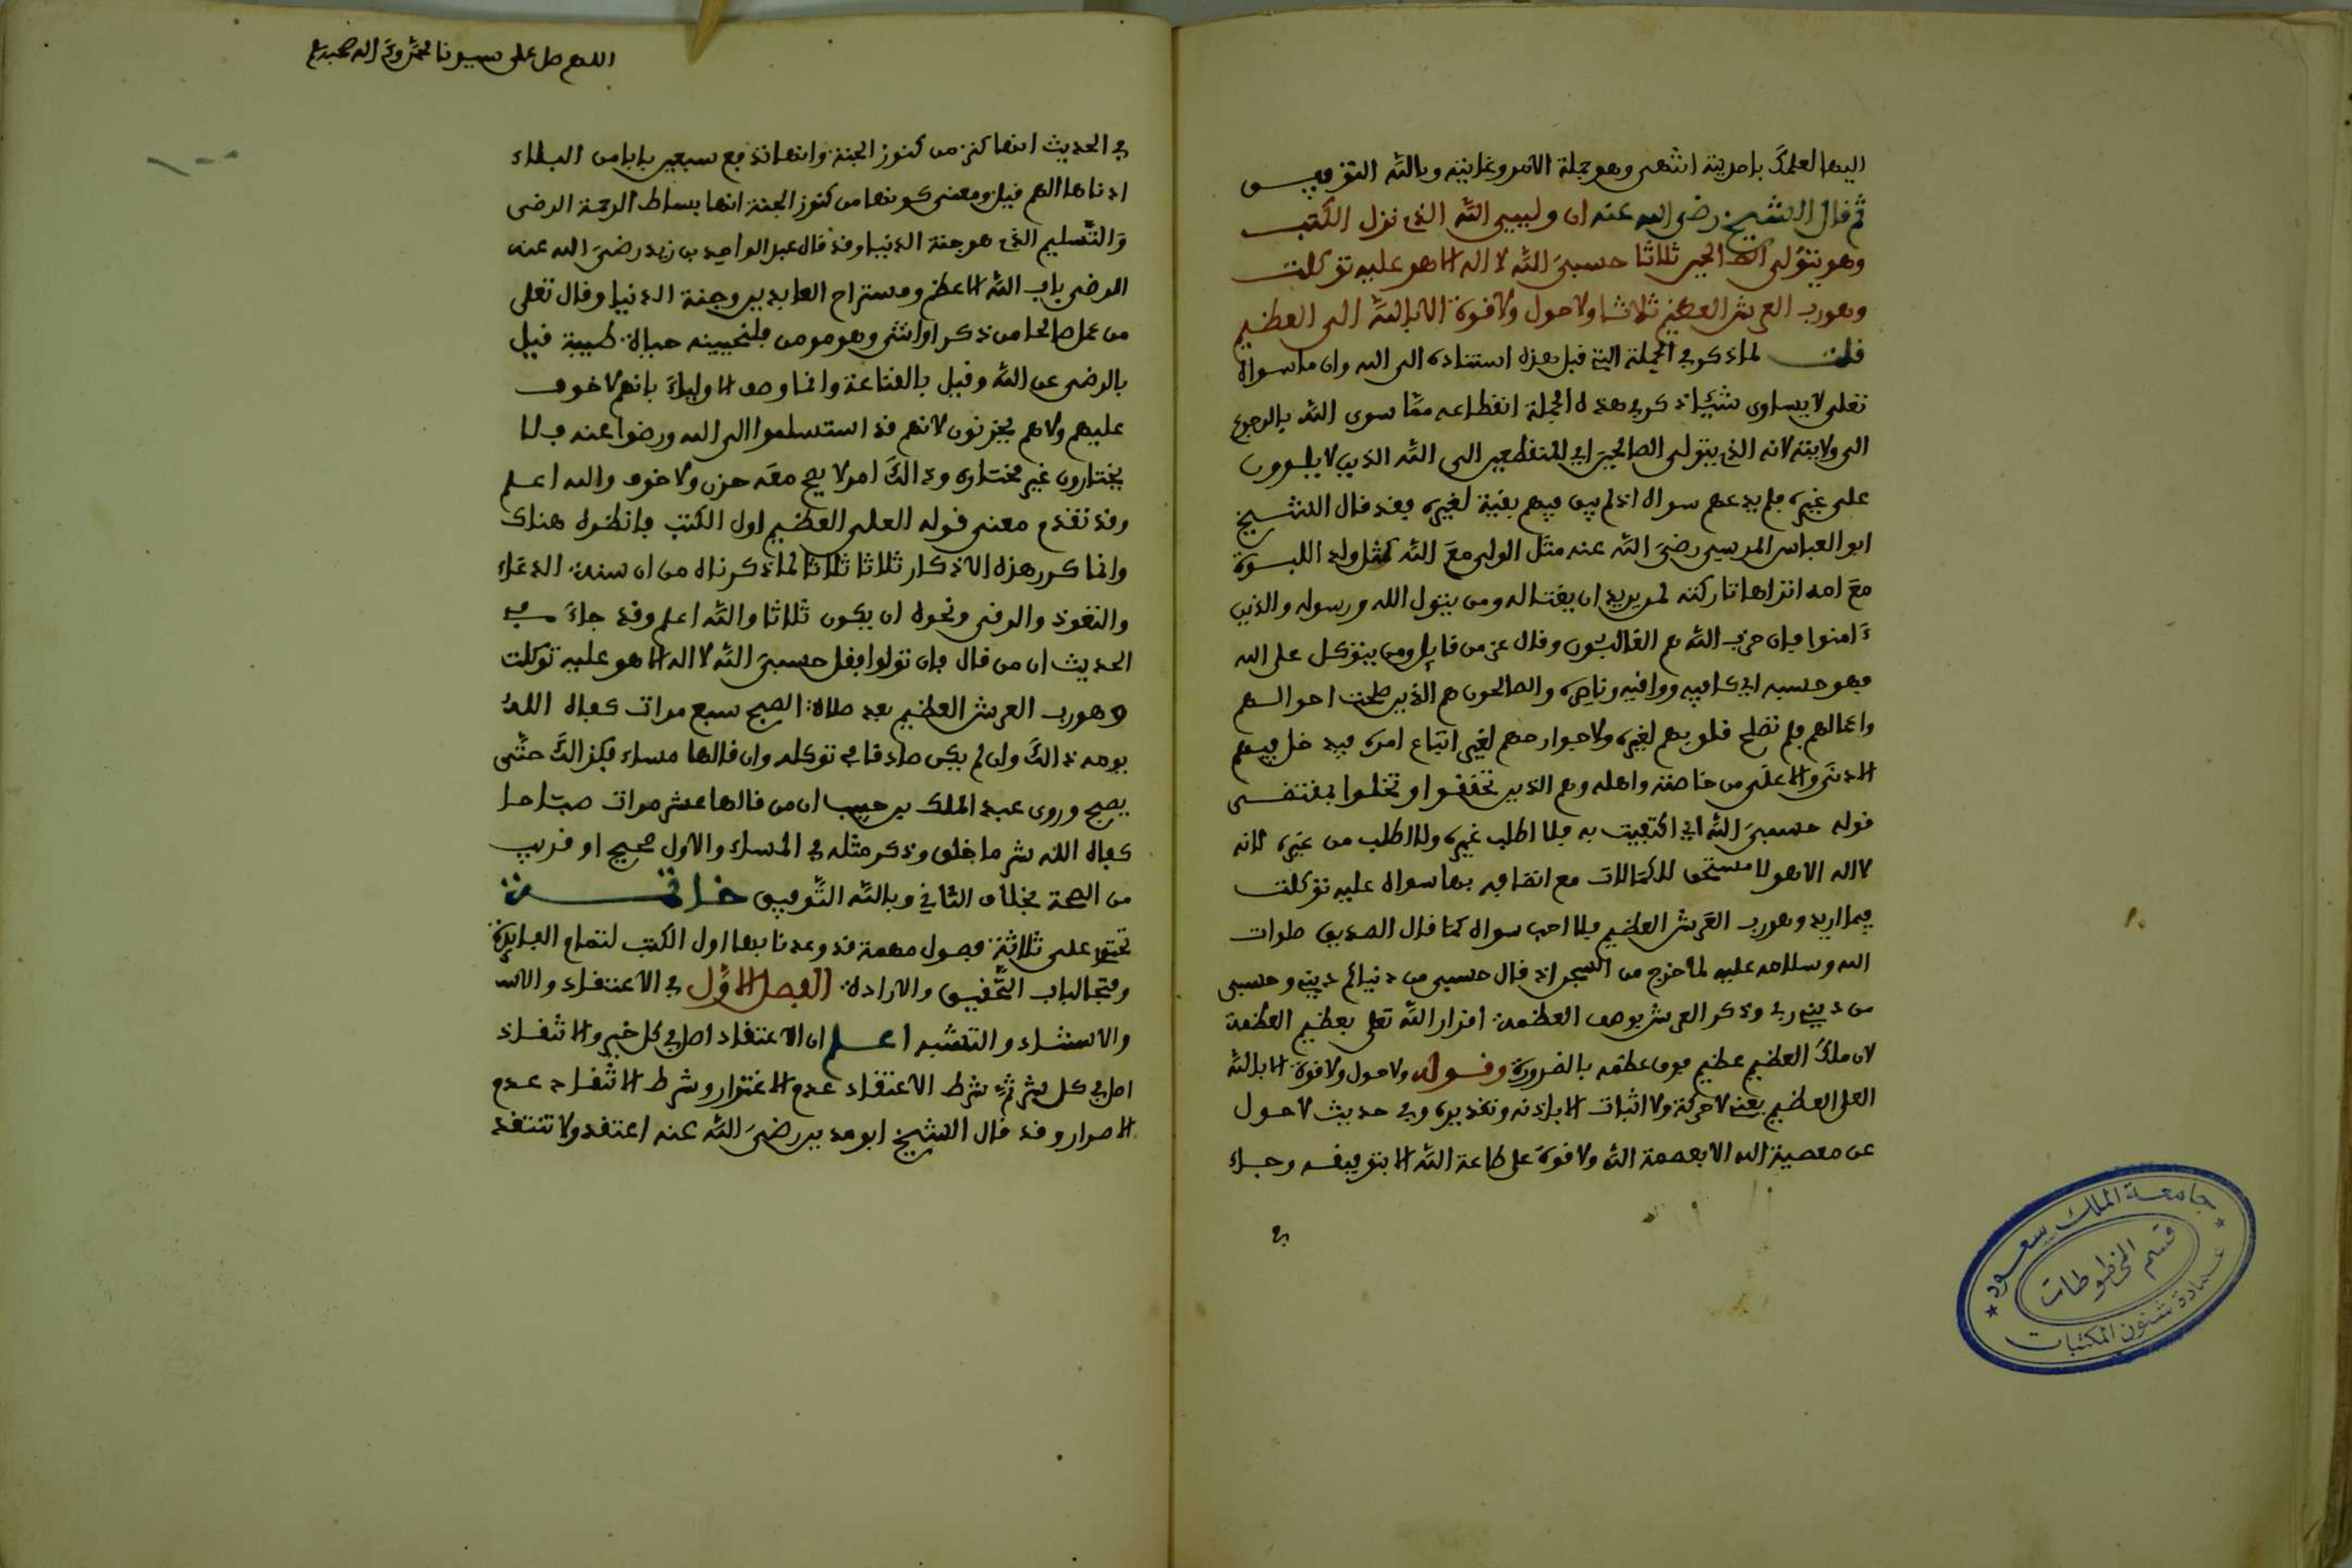 اليها العلماء بامدينة انتهى وهو جملة الامر وغايته وبالله التوفيق
ثم قال الشيخ رضي الله عنه ان وليي الله الذي نزل الكتب
وهو يتولى الصالحين ثلاثا حسبي الله لا اله الا هو عليه توكلت
وهو رب العرش العظيم ثلاثا ولا حول ولا قوة الا بالله العلي العظيم
قلت لما ذكر في الجملة التي قبل هذه استناده الى الله وان ما سواه
تعلى لا يساوي شيئا ذكر في هذه الجملة انقطاعه مما سوى الله بالرجوع
الى ولايته لانه الذي يتولى الصالحين اي المنقطعين الى الله الذين لا يلوون
على غيره فلم يدعهم سواه اذ لم يبق فيهم بقية لغيره فقد قال الشيخ
ابو العباس المرسي رضي الله عنه مثل الولي مع الله كمثل ولد اللبوة
مع امه اتراها تاركته لمن يريد ان يغتاله ومن يتول الله ورسوله والذين
ءامنوا فان حزب الله هم الغالبون وقال عز من قايل ومن يتوكل على الله
فهو حسبه اي كافيه وواقيه وناصره والصالحون هم الذين صلحت احوالهم
واعمالهم فلم تصلح قلوبهم لغيره ولا جوارحهم لغير اتباع امره فيدخل فيهم
الادنى والاعلى من خاصته واهله وهم الذين تحققوا وتخلوا بمقتضى
قوله حسبي الله اي اكتفيت به فلا اطلب غيره ولا اطلب من غيره لانه
لا اله الا هو لا مستحق للكمالات مع اتصافه بها سواه عليه توكلت
فيما اريد وهو رب العرش العظيم فلا احب سواه كما قال الصديق صلوات
الله وسلامه عليه لما خرج من السجن اذ قال حسبي من دنياي ديني وحسبي
من ديني ربي وذكر العرش بوصف العظمة اقرار الله تعلى بعظيم العظمة
لان ملك العظيم عظيم فوق عظمه بالضرورة وقوله ولا حول ولا قوة الا بالله
العلي العظيم يعني لا حركة ولا اثبات الا باذنه وتقديره وفي حديث لا حول
عن معصية الله الا بعصمة الله ولا قوة على طاعة الله الا بتوفيقه وجاء
في
جامعة الملك سعود
قسم المخطوطات
عمادة شئون المكتبات
اللهم صل على سيدنا محمد وعلى اله وصحبه
في الحديث انها كنز من كنوز الجنة وانها تدفع سبعين بابا من البلاء
ادناها الهم قيل ومعنى كونها من كنوز الجنة انها بساط الرحمة الرضى
والتسليم الذي هو جنة الدنيا وقد قال عبد الواحد بن زيد رضي الله عنه
الرضى باب الله الاعظم ومستراح العابدين وجنة الدنيا وقال تعلى
من عمل صالحا من ذكر او انثى وهو مومن فلنحيينه حياة طيبة قيل
بالرضى عن الله وقيل بالقناعة وانما وصف الاولياء بانهم لا خوف
عليهم ولا هم يحزنون لانهم قد استسلموا الى الله ورضوا عنه فلا
يختارون غير مختاره وذالك امر لا يصح معه حزن ولا خوف والله اعلم
وقد تقدم معنى قوله العلي العظيم اول الكتب فانظره هناك
وانما كرر هذه الاذكار ثلاثا ثلاثا لما ذكرناه من ان سنة الدعاء
والتعوذ والرقى ونحوه ان يكون ثلاثا والله اعلم وقد جاء في
الحديث ان من قال فان تولوا فقل حسبي الله لا اله الا هو عليه توكلت
وهو رب العرش العظيم بعد صلاة الصبح سبع مرات كفاه الله
يومه ذالك وان لم يكن صادقا في توكله وان قالها مساء فكذالك حتى
يصبح وروى عبد الملك بن حبيب ان من قالها عشر مرات صباحا
كفاه الله شر ما خلق وذكر مثله في المساء والاول صحيح او قريب
من الصحة بخلاف الثاني وبالله التوفيق خاتمة
تحتوي على ثلاثة فصول مهمة قد وعدنا بها اول الكتب لتمام الفايدة
وفتحا لباب التحقيق والارادة الفصل الاول في الاعتقاد والاس
والاستناد والتشبه اعلم ان الاعتقاد اصل في كل خير والانتقاد
اصل في كل شر ثم شرط الاعتقاد عدم الاغترار وشرط الانتقاد عدم
الاصرار وقد قال الشيخ ابو مدين رضي الله عنه اعتقد ولا تنتقد